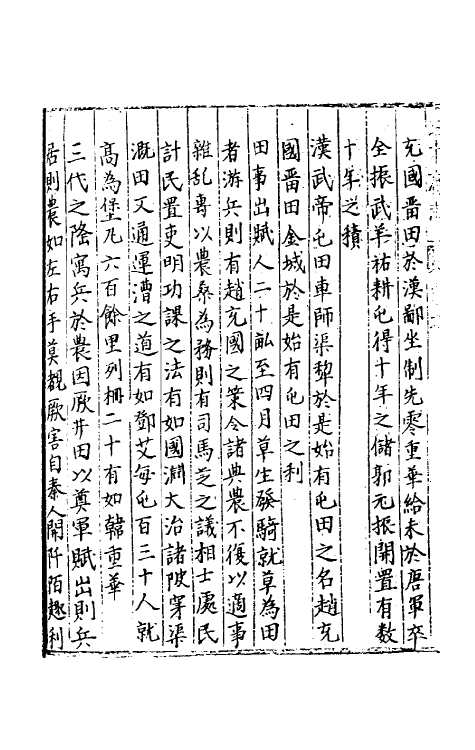 充國畱田於漢鄙坐制先零重華給耒於唐軍卒
全振武羊祐耕屯得十年之儲郭元振開置有数
十年之積
漢武帝屯田車師渠犂於是始有屯田之名趙充
國畱田金城於是始有屯田之利
田事出賦人二十畝至四月草生發騎就草為田
者游兵則有趙充國之策令諸典農不復以適事
雜乱專以農桑為務則有司馬芝之議相士處民
計民置吏明功課之法有如國淵大治諸陂穿渠
溉田又通運漕之道有如鄧艾每屯百三十人就
高為堡凡六百餘里列柵二十有如韓重華
三代之隆寓兵於農因厥井田以奠軍賦出則兵
居則農如左右手莫覩厥害自秦人開阡陌趨利